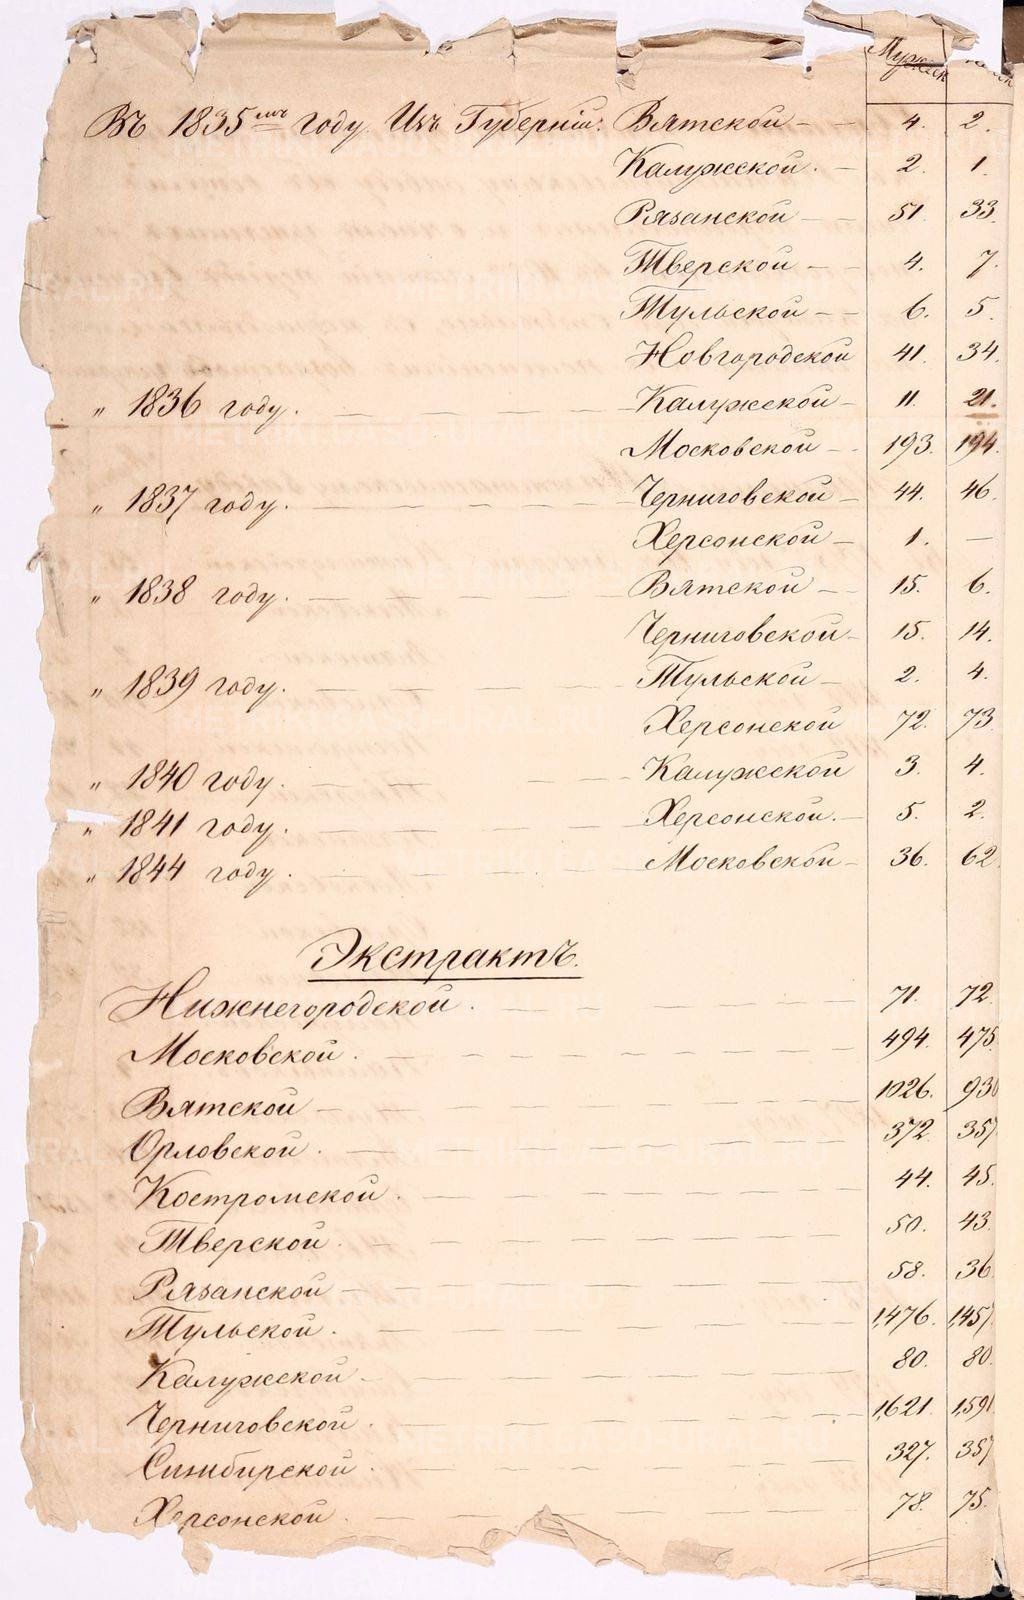 Мужеск
Въ 1835мъ году Изъ Губерній: Вятской — 4. 2.
Калужской. — 2. 1.
Рязанской — — 51. 33.
Тверской — — 4. 7.
Тульской — — 6. 5.
Новгородской 41. 34.
„ 1836 году. — — — — Калужской — 11. 21.
Московской — 193. 194.
„ 1837 году. — — — — Черниговской — 44. 46.
Херсонской — 1. —
„ 1838 году. — — — — Вятской — — 15. 6.
Черниговской — 15. 14.
„ 1839 году. — — — — Тульской — 2. 4.
Херсонской 72. 73
„ 1840 году. — — — — Калужской 3. 4.
„ 1841 году. — — — — Херсонской. — 5. 2.
„ 1844 году. — — — — Московской — 36. 62
Экстрактъ.
Нижнегородской. — — — 71. 72.
Московской. — — — 494. 475.
Вятской — — — 1026. 930
Орловской. — — — 372. 357
Костромской. — — — 44. 45.
Тверской. — — — 50. 43.
Рязанской — — — 58. 36
Тульской. — — — 1,476. 1,457
Калужской — — — 80. 80.
Черниговской. — — — 1,621. 1,591
Симбирской. — — — 327. 357
Херсонской. — — — 78. 75.